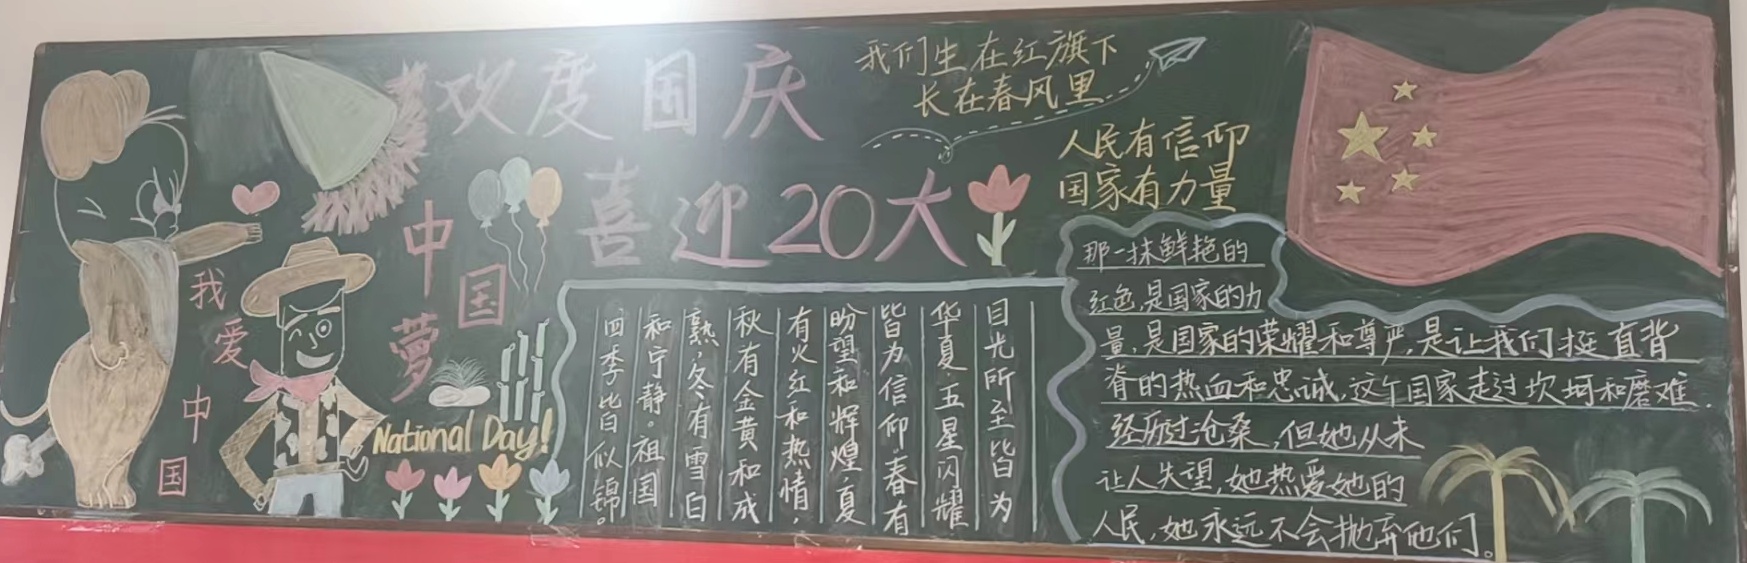 欢度国庆
喜迎20大
我们生在红旗下
长在春风里
人民有信仰
国家有力量
中国梦
我爱中国
National Day!
目光所至皆为
华夏,五星闪耀
皆为信仰。春有
盼望和辉煌,夏
有火红和热情,
秋有金黄和成
熟,冬有雪白
和宁静。祖国
四季皆似锦。
那一抹鲜艳的
红色,是国家的力
量,是国家的荣耀和尊严,是让我们挺直背
脊的热血和忠诚,这个国家走过坎坷和磨难
经历过沧桑,但她从未
让人失望,她热爱她的
人民,她永远不会抛弃他们。